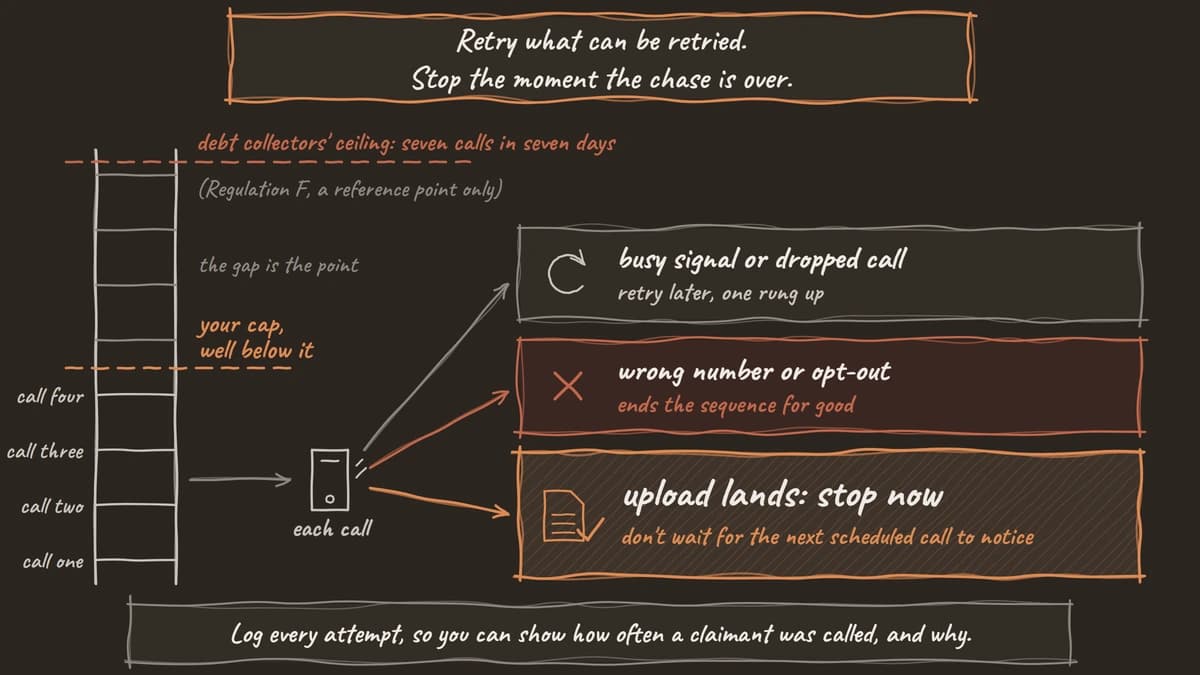 Retry what can be retried.
Stop the moment the chase is over.
debt collectors' ceiling: seven calls in seven days
(Regulation F, a reference point only)
the gap is the point
your cap,
well below it
call four
call three
call two
call one
each call
busy signal or dropped call
retry later, one rung up
wrong number or opt-out
ends the sequence for good
upload lands: stop now
don't wait for the next scheduled call to notice
Log every attempt, so you can show how often a claimant was called, and why.